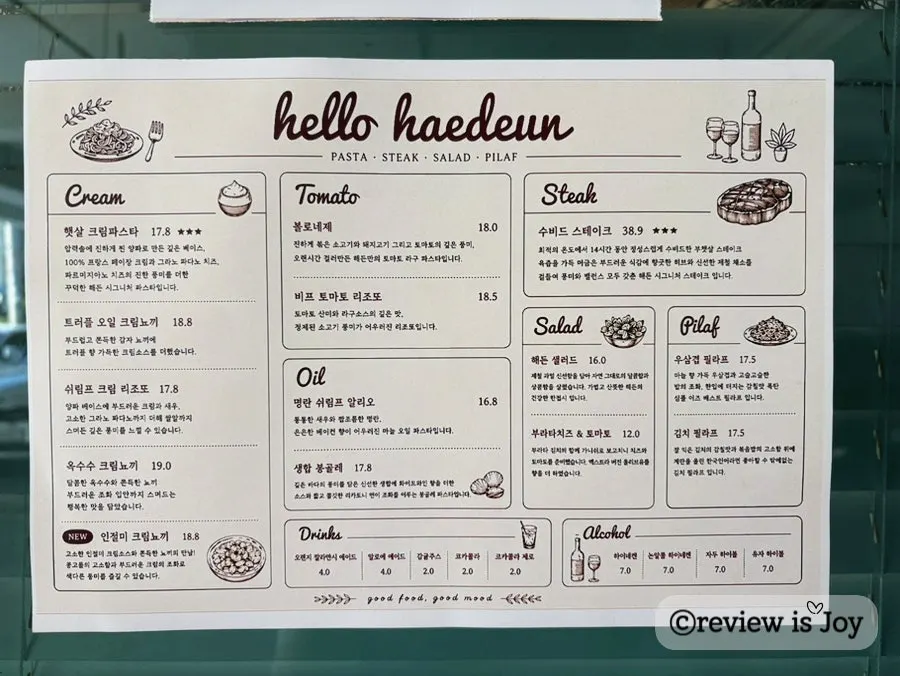 hello haedeun
PASTA · STEAK · SALAD · PILAF
Cream
햇살 크림파스타 17.8 ★★★
압력솥에 진하게 찐 양파로 만든 깊은 베이스,
100% 프랑스 페이장 크림과 그라노 파다노 치즈,
파르미지아노 치즈의 진한 풍미를 더한
꾸덕한 해든 시그니처 파스타입니다.
트러플 오일 크림뇨끼 18.8
부드럽고 쫀득한 감자 뇨끼에
트러플 향 가득한 크림소스를 더했습니다.
쉬림프 크림 리조또 17.8
양파 베이스에 부드러운 크림과 새우,
고소한 그라노 파다노까지 더해 쌀알까지
스며든 깊은 풍미를 느낄 수 있습니다.
옥수수 크림뇨끼 19.0
달콤한 옥수수와 쫀득한 뇨끼
부드러운 조화 입안까지 스며드는
행복한 맛을 담았습니다.
NEW 인절미 크림뇨끼 18.8
고소한 인절미 크림소스와 쫀득한 뇨끼의 만남!
콩고물의 고소함과 부드러운 크림의 조화로
색다른 풍미를 즐길 수 있습니다.
Tomato
볼로네제 18.0
진하게 볶은 소고기와 돼지고기 그리고 토마토의 깊은 풍미,
오랜시간 걸러만든 해든만의 토마토 라구 파스타입니다.
비프 토마토 리조또 18.5
토마토 산미와 라구소스의 깊은 맛,
정제된 소고기 풍미가 어우러진 리조또입니다.
Oil
명란 쉬림프 알리오 16.8
통통한 새우와 짭조름한 명란,
은은한 베이컨 향이 어우러진 마늘 오일 파스타입니다.
생합 봉골레 17.8
깊은 바다의 풍미를 담은 신선한 생합에 화이트와인 향을 더한
소스와 짧고 쫄깃한 리카토니 면이 조화를 이루는 봉골레 파스타입니다.
Steak
수비드 스테이크 38.9 ★★★
최적의 온도에서 14시간 동안 정성스럽게 수비드한 부챗살 스테이크
육즙을 가득 머금은 부드러운 식감에 향긋한 허브와 신선한 제철 채소를
곁들여 풍미와 밸런스 모두 갖춘 해든 시그니처 스테이크 입니다.
Salad
해든 샐러드 16.0
제철 과일 신선함을 담아 자연 그대로의 달콤함과
상큼함을 살렸습니다. 가볍고 산뜻한 해든의
건강한 한접시 입니다.
부라타치즈 & 토마토 12.0
부라타 김치의 함께 가나쉬로 보고치니 치즈와
토마토를 준비했습니다. 엑스트라 버진 올리브유를
향을 더 하였습니다.
Pilaf
우삼겹 필라프 17.5
마늘 향 가득 우삼겹과 고슬고슬한
밥의 조화, 한입에 터지는 감칠맛 폭탄
심플 이즈 베스트 필라프 입니다.
김치 필라프 17.5
잘 익은 김치의 감칠맛과 볶음밥의 고소함 위에
계란을 올린 한국인이라면 좋아할 수 밖에없는
김치 필라프 입니다.
Drinks
오렌지 깔라만시 에이드 4.0
알로에 에이드 4.0
감귤주스 2.0
코카콜라 2.0
코카콜라 제로 2.0
Alcohol
하이네켄 7.0
논알콜 하이네켄 7.0
자두 하이볼 7.0
유자 하이볼 7.0
good food, good mood
©review is Joy